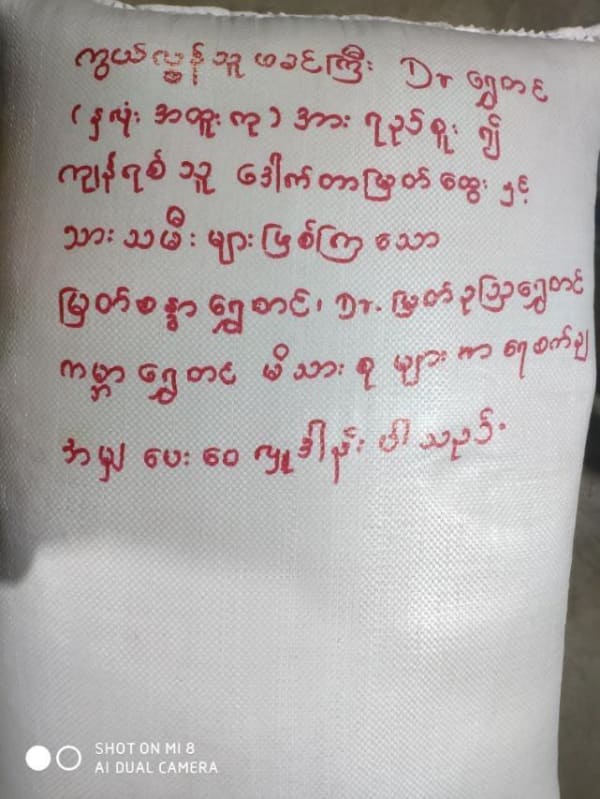 ကွယ်လွန်သူ ဖခင်ကြီး Dr ရွှေတင်
(နှလုံး အထူးကု) အား ရည်စူး ၍
ကျန်ရစ် သူ ဒေါက်တာမြတ် ထွေး နှင့်
သား သမီး များ ဖြစ်ကြ သော
မြတ်စန္ဒာ ရွှေတင်၊ Dr. မြတ်ဥဩရွှေတင်
ကမ္ဘာ ရွှေတင် မိသား စု များ က ရေစက်ချ
အမျှ ပေး ဝေ လှူဒါန်း ပါ သည်။
SHOT ON MI 8
AI DUAL CAMERA